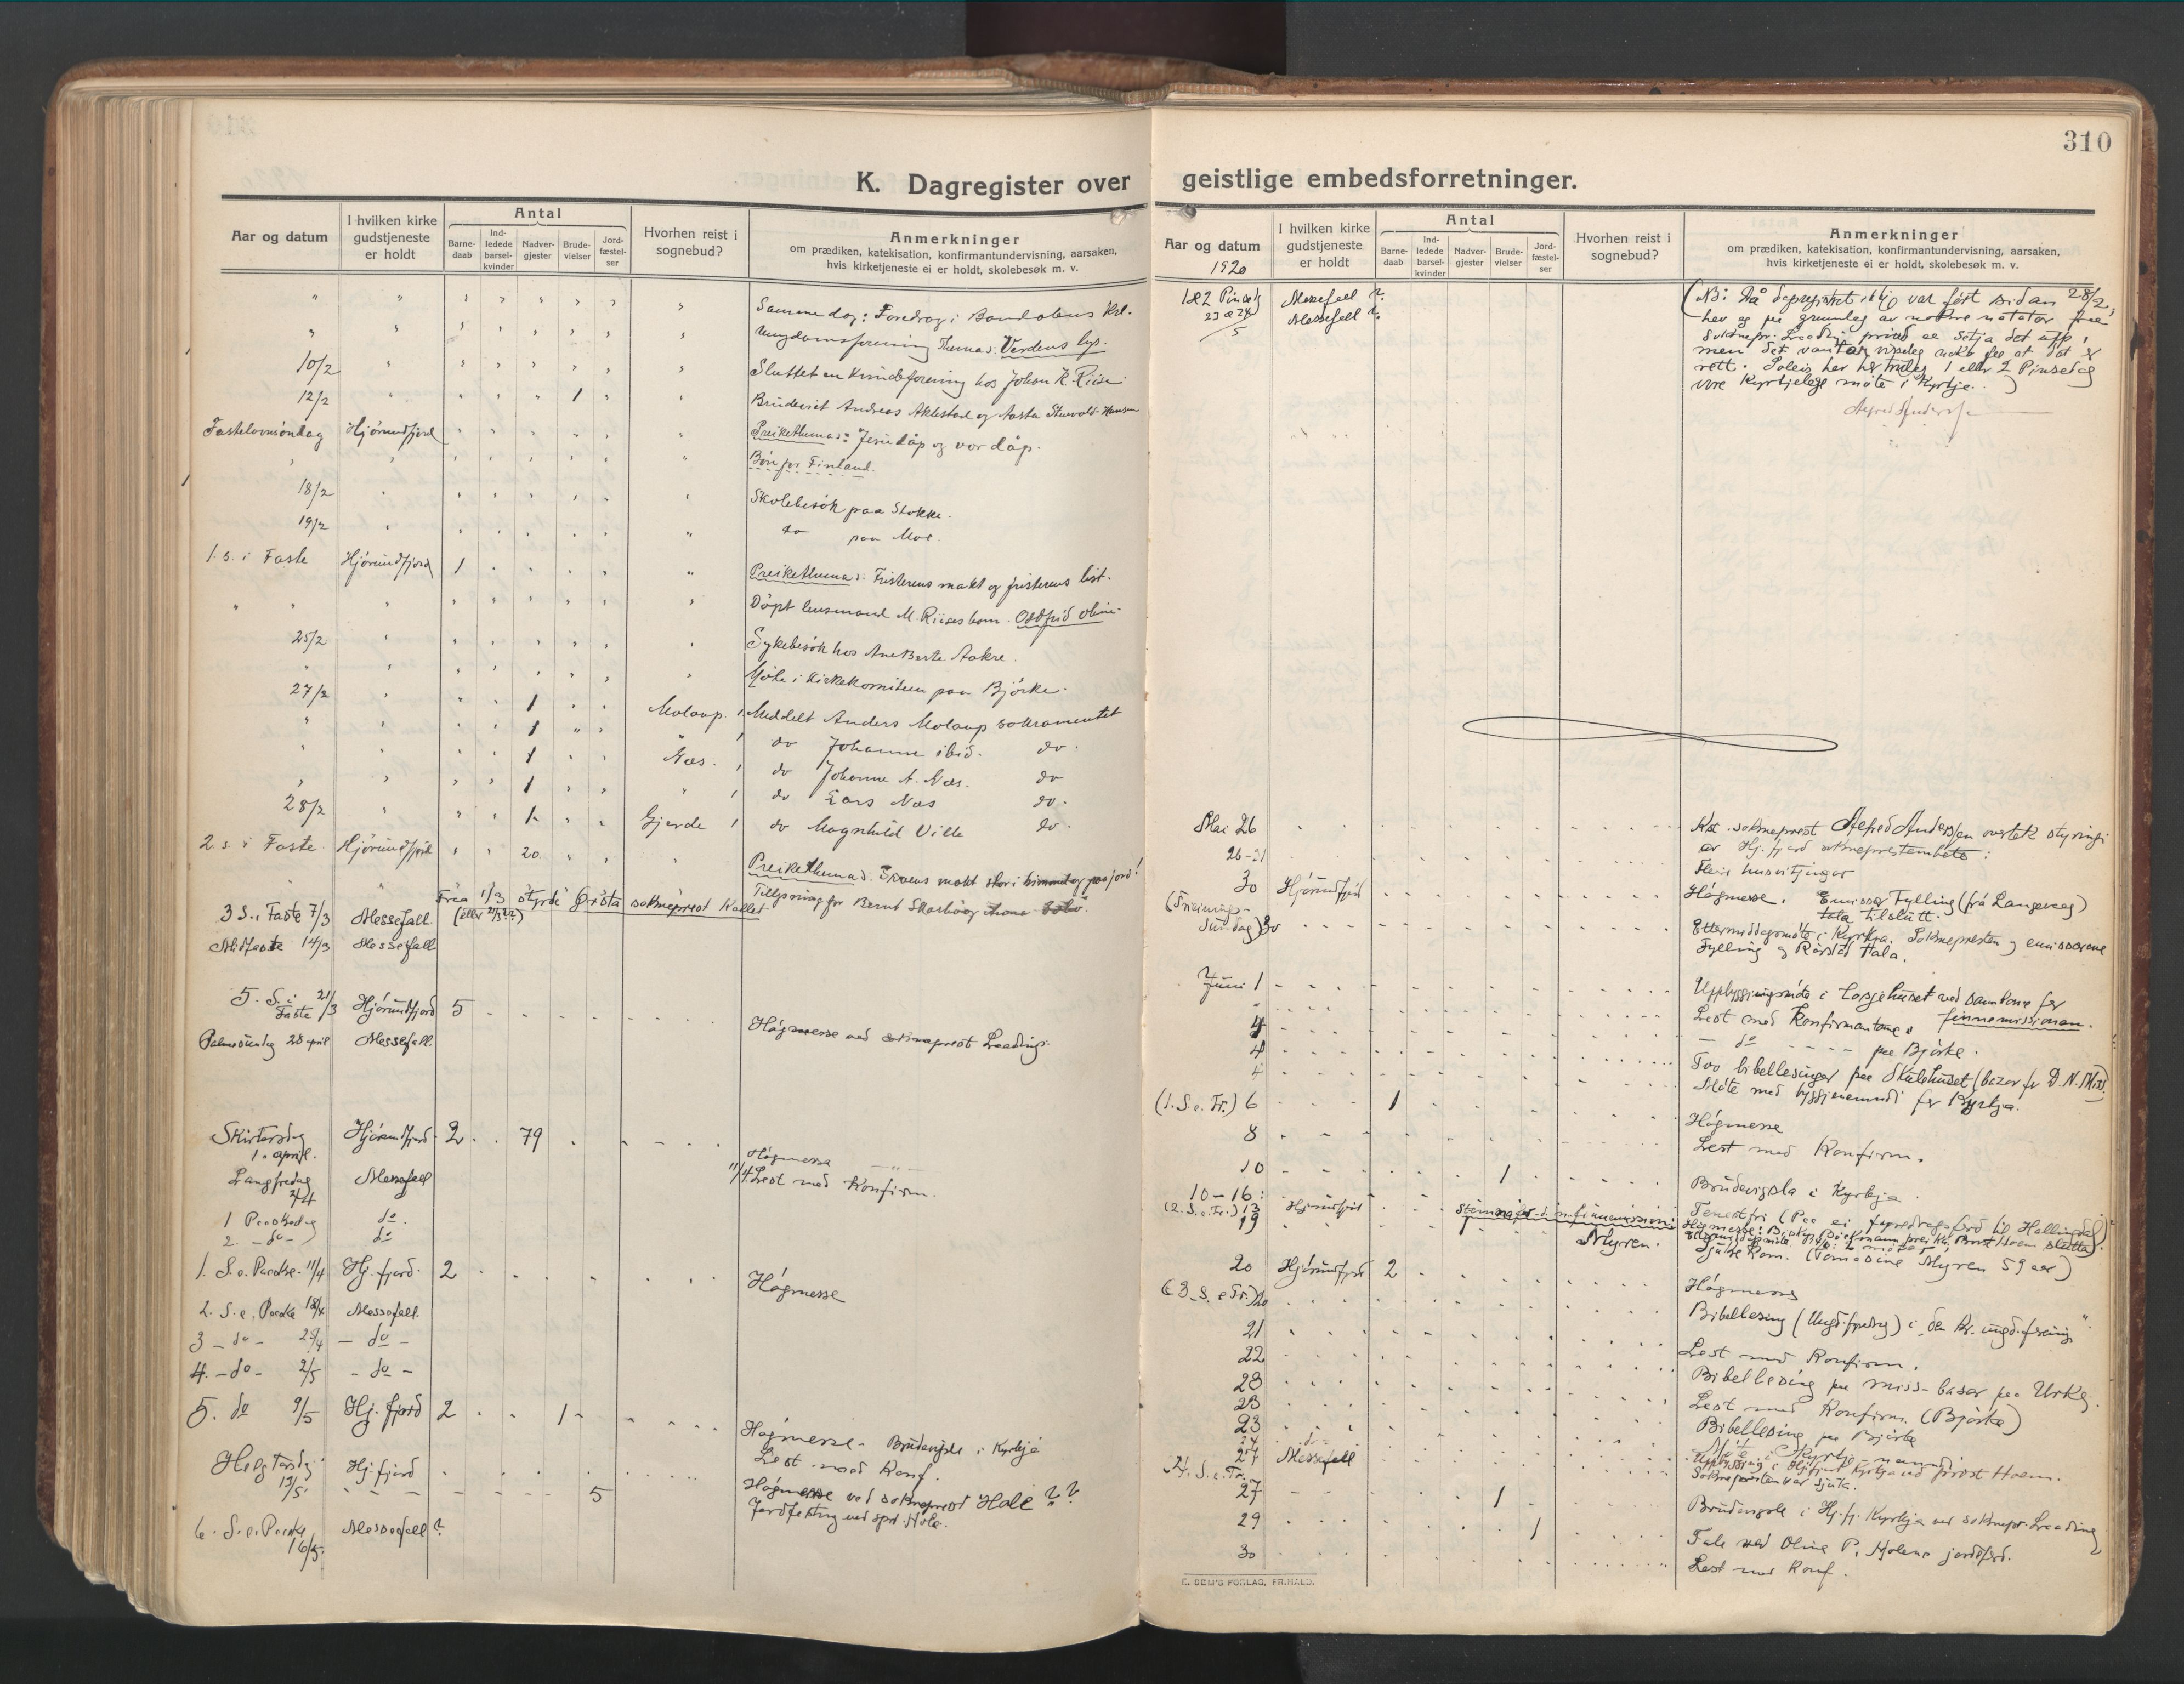 310
K. Dagregister over geistlige embedsforretninger.
Aar og datum
I hvilken kirke gudstjeneste er holdt
Antal
Barne-daab
Ind-ledede barsel-kvinder
Nadver-gjester
Brude-vielser
Jord-fæstel-ser
Hvorhen reist i sognebud?
Anmerkninger
om prædiken, katekisation, konfirmantundervisning, aarsaken,
hvis kirketjeneste ei er holdt, skolebesøk m. v.
Samme dag: Foredrag i Bondalens Krl.
Ungdomsforening Thema: Verdens lys.
10/2 Sluttet en kvindeforening hos Johan K. Riise
12/2 1 Brudeviet Andreas Aklestad og Aasta Hansen
Fastelavnsöndag Hjörundfjord Preikethema: Jesu dåp og vor dåp.
Bön for Finland.
18/2 Skolebesök paa Stokke.
19/2 do paa Moe.
1. s. i Faste Hjörundfjord 1 Preikethema: Fristerens makt og fristerens list.
Döpt lensmand M. Riises barn. Oddfrid
25/2 Sykebesök hos Ane Berte Aakre.
Möte i Kirkekomiteen paa Björke.
27/2 1 Molaup Meddelt Anders Molaup sakramentet
1 do Johanne ibid. do.
1 Næs. do Johanne A. Næs. do
1 do Lars Næs do.
28/2 1 Gjerde do Magnhild Ville do.
2. s. i Faste Hjörundfjord 20 Preikethema: Troens makt stor i himmel og paa jord!
Tillysning for Bernt Skarbö og
Fraa 1/3 styrde Örsta sokneprest Kallet
(eller 21/3??)
3 S. i Faste 7/3 Messefall
Midfaste 14/3 Messefall
5. S. i Faste 21/3 Hjörundfjord 5 Högmesse ved sokneprest Leading.
Palmesundag 28 april Messefall.
Skirtorsdag 1. april. Hjörundfjord 2 79 Högmesse
Langfredag 2/4 Messefall 11/4 Lest med Konfirm.
1 Paaskedag do.
2. - do - do
1. S. e. Paaske 11/4 Hj. fjord 2 Högmesse
2. S. e. Paaske 18/4 Messefall.
3 - do - 25/4 - do -
4. - do - 2/5 - do -
5. do 9/5 Hj. fjord 2 1 Högmesse - Brudevigsle i Kyrkje
Lest med Konf.
Helg Torsdag 13/5 Hj. fjord Högmesse ved sokneprest Hole ??
5 Jordfesting ved spr. Hole.
6. S. e. Paaske 16/5. Messefall?
Aar og datum
1920
I hvilken kirke gudstjeneste er holdt
Antal
Barne-daab
Ind-ledede barsel-kvinder
Nadver-gjester
Brude-vielser
Jord-fæstel-ser
Hvorhen reist i sognebud?
Anmerkninger
om prædiken, katekisation, konfirmantundervisning, aarsaken,
hvis kirketjeneste ei er holdt, skolebesøk m. v.
1 & 2 Pinsedg Messefall ?
23 & 24/5 Messefall ?
(NB: Då dagregistret ikkje var fört sidan 28/2,
hev eg på grunnlag av nokre notatar fraa
soknepr. Leading prövd aa setja det upp,
men det vantar visseleg noko fee at dat er
rett. Soleis her 1 eller 2 Pinsedag
vore Kyrkjeleg möte i Kyrkja.)
Mai 26 Kst. sokneprest Alfred Anderssen overtek styringi
av Hj. fjord soknepresteembete:
26-31 Fleire husvitjingar
30 Hjörundfjord Högmesse. Emissær Fylling (frå Langevaag) tala tilslutt.
(Treeinings-sundag) 30 Ettermiddagsmöte i Kyrkja. Soknepresten og emissærene
Fylling og Rörstad tala.
Juni 1 Uppbyggingsmöte i losjehuset ved samkoma for finnemissionen.
4 Lest med Konfirmantane
4 - do - paa Björke.
4 Tvo bibellesingar paa Skulehuset (basar for D. N. Miss)
Möte med byggjenemndi for Kyrkja.
(1. S. e. Tr.) 6 1 Högmesse
8 Lest med Konfirm.
10 1 Brudevigsla i Kyrkja
10-16: Tenestfri (Paa ei foredragsferd til Hallingdal)
(2. S. e. Tr.) 13 Hjörundfjord
19 Myren. Sjuke Kom. (Tomasine Myren 59 aar)
20 Hjörundfjord 2 Högmesse
(3. S. e Tr.) 20 Bibellesing (Ungd. foredrag) i "den kr. ungd. forening"
21 Lest med Konfirm.
22 Bibellesing paa miss-basar paa Urke.
23 Lest med Konfirm. (Björke)
23 Bibellesing paa Björke
23 Möte i Kyrkje nemndi.
24
27 Messefall
4. S. e. Tr. Soknepresten var sjuk.
27 1 Brudevigsle i Hj. fj. Kyrkja ved soknepr. Leading
29 1 Tale ved Oline P. Molene jordferd.
30 Lest med Konf.
E. SEM'S FORLAG, FR.HALD.